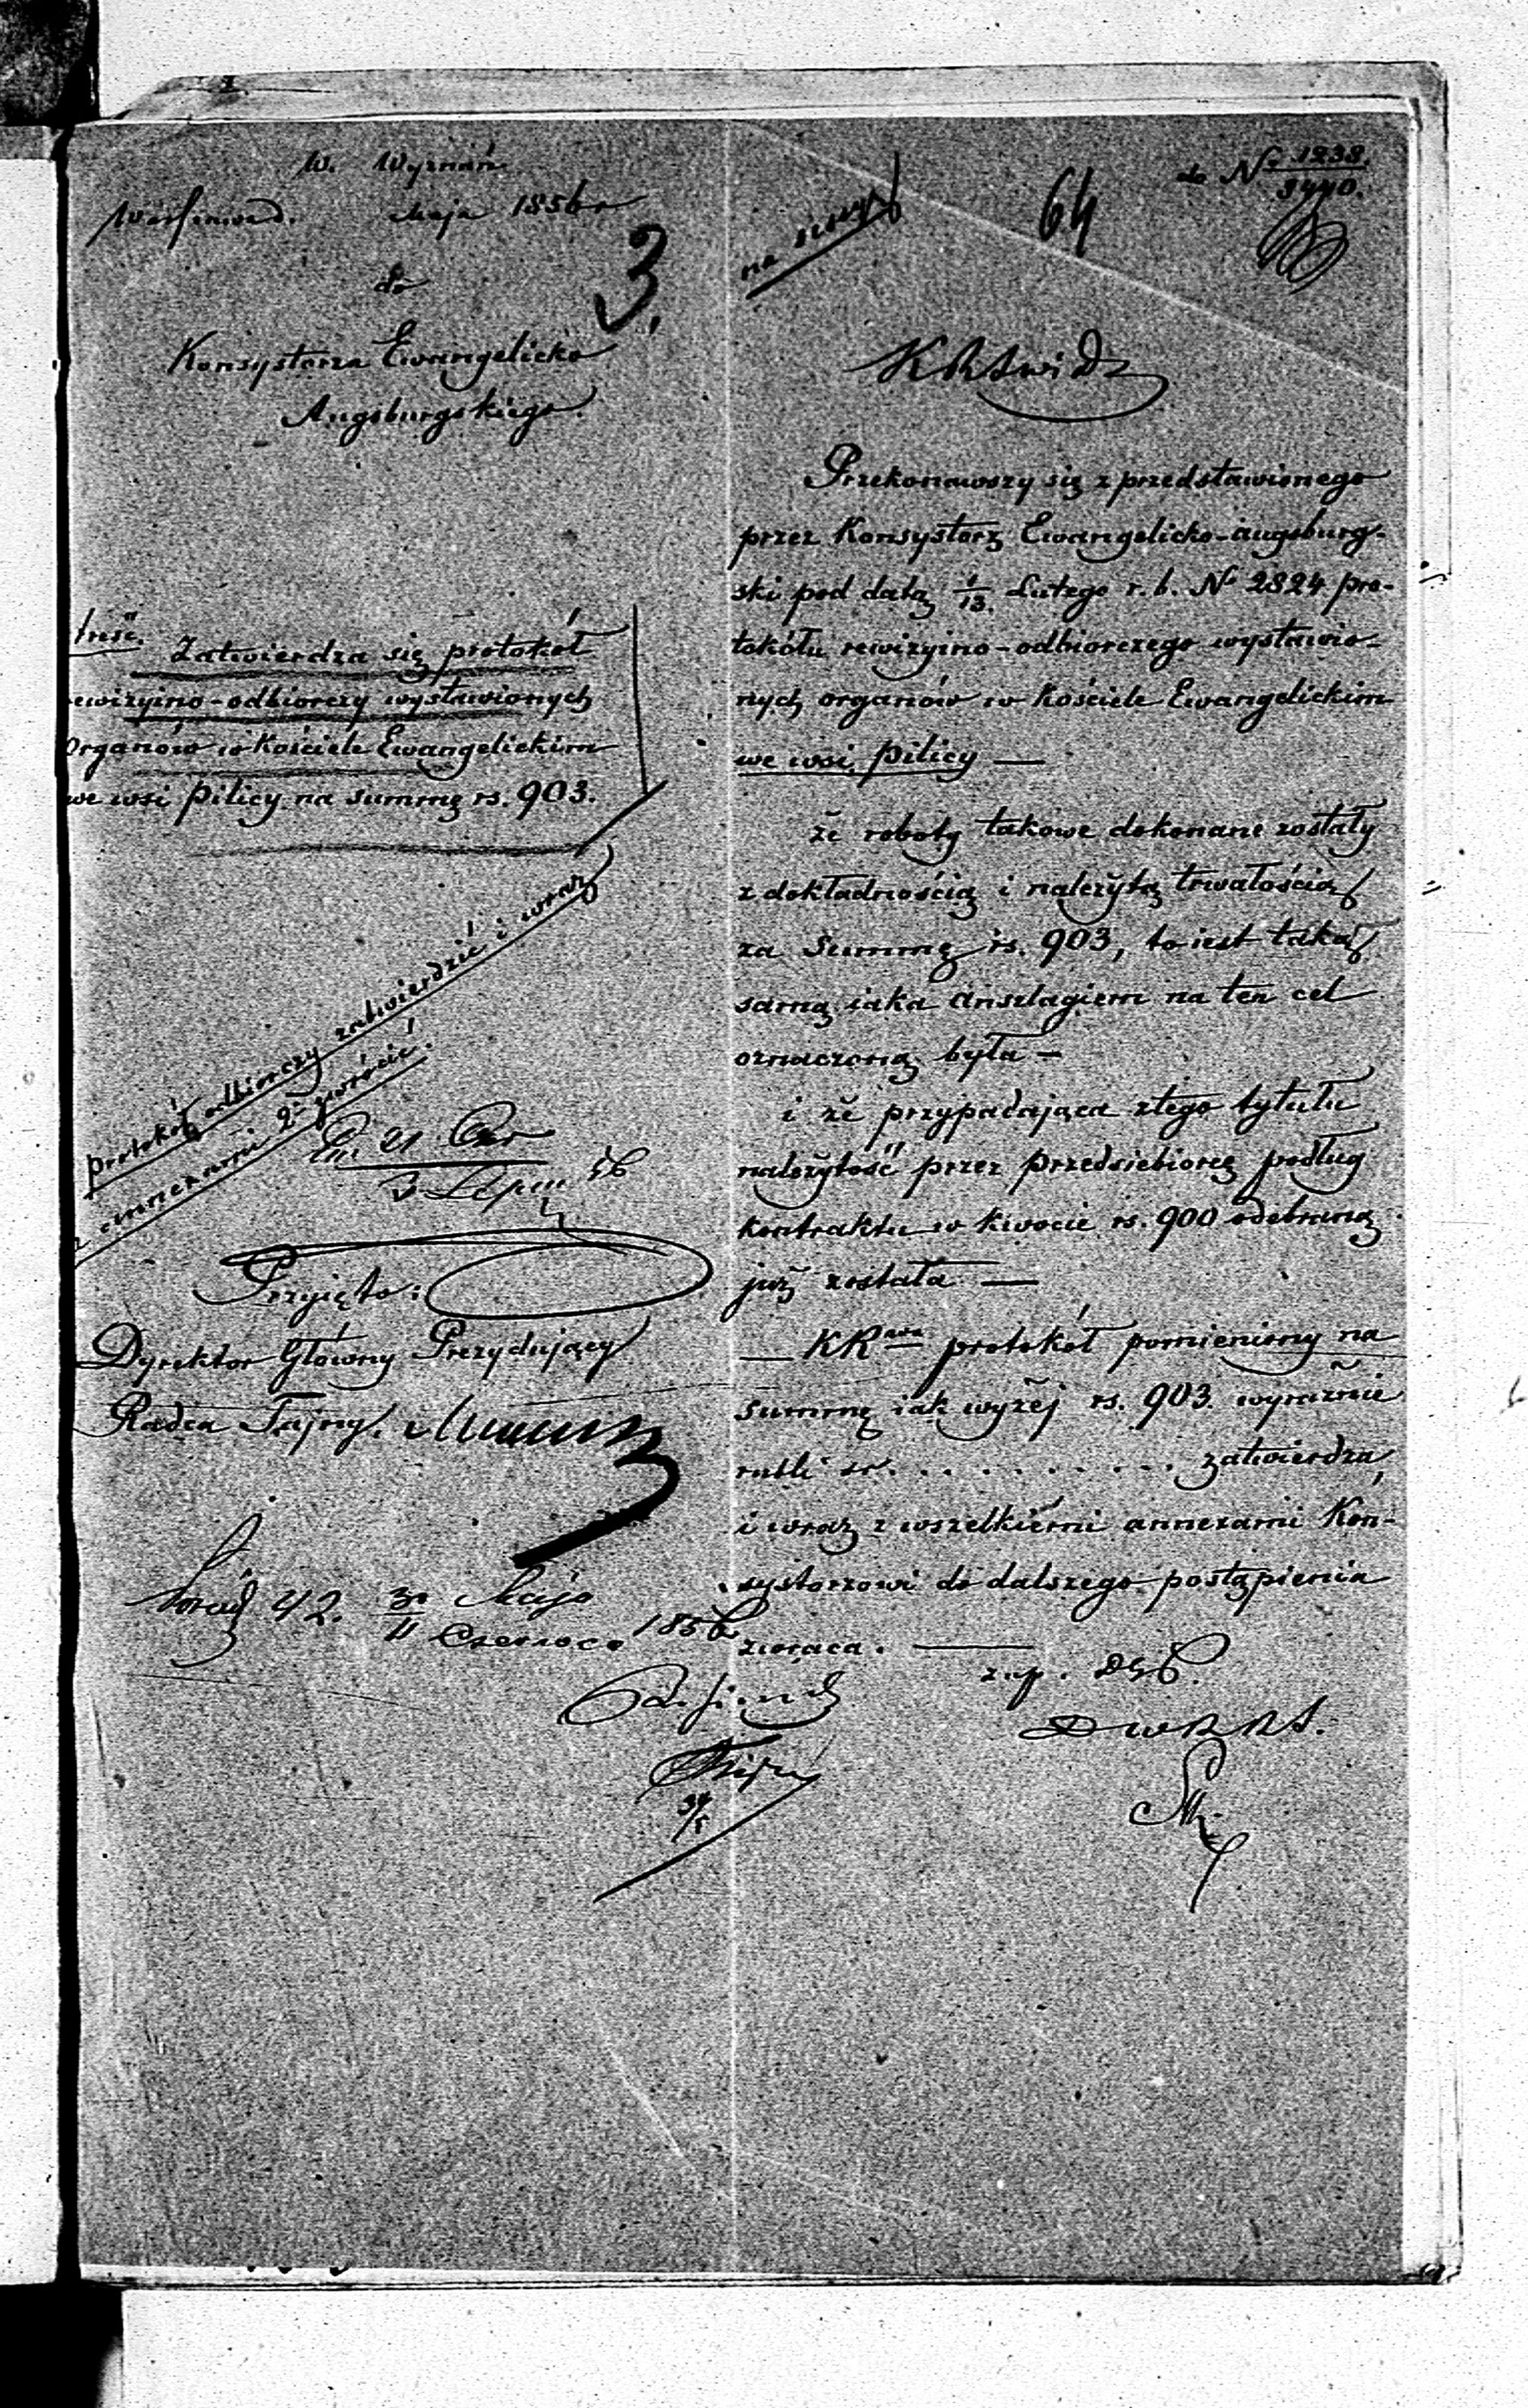 W. Wyznań
Maja 1856 r
do
Konsystorza Ewangelicko
Augsburgskiego.
3.
treść.
Zatwierdza się protokół
rewizyino-odbiorczy wystawionych
Organów w Kościele Ewangelickim
we wsi Pilicy na summę rs. 903.
protokół odbiorczy zatwierdzić i wraz
z annexami zwrócić.
21
3 Lipca 56
Przyięto:
Dyrektor Główny Prezydujący
Radca Tajny.
42. 30 Maja
11 Czerwca 1856
na
64
do No 1238.
3440.
KRSWiD
Przekonawszy się z przedstawionego
przez Konsystorz Ewangelicko-augsburg-
ski pod datą 1/13. Lutego r. b. No 2824 pro-
tokółu rewizyino-odbiorczego wystawio-
nych organów w kościele Ewangelickim
we wsi Pilicy —
że roboty takowe dokonane zostały
z dokładnością i należytą trwałością
za Summę rs. 903, to iest taką
samą iaka anszlagiem na ten cel
oznaczoną była —
i że przypadająca z tego tytułu
należytość przez przedsiebiorcę podług
kontraktu w kwocie rs. 900 odebraną
już została —
— KR protokół pomieniony na
summę iak wyżej rs. 903. wyraźnie
rubli sr. . . . . . . . . . . zatwierdza,
i wraz z wszelkiémi annexami Kon-
systorzowi do dalszego postąpienia
zwraca. —
z. p. DGP.
DWRRS.